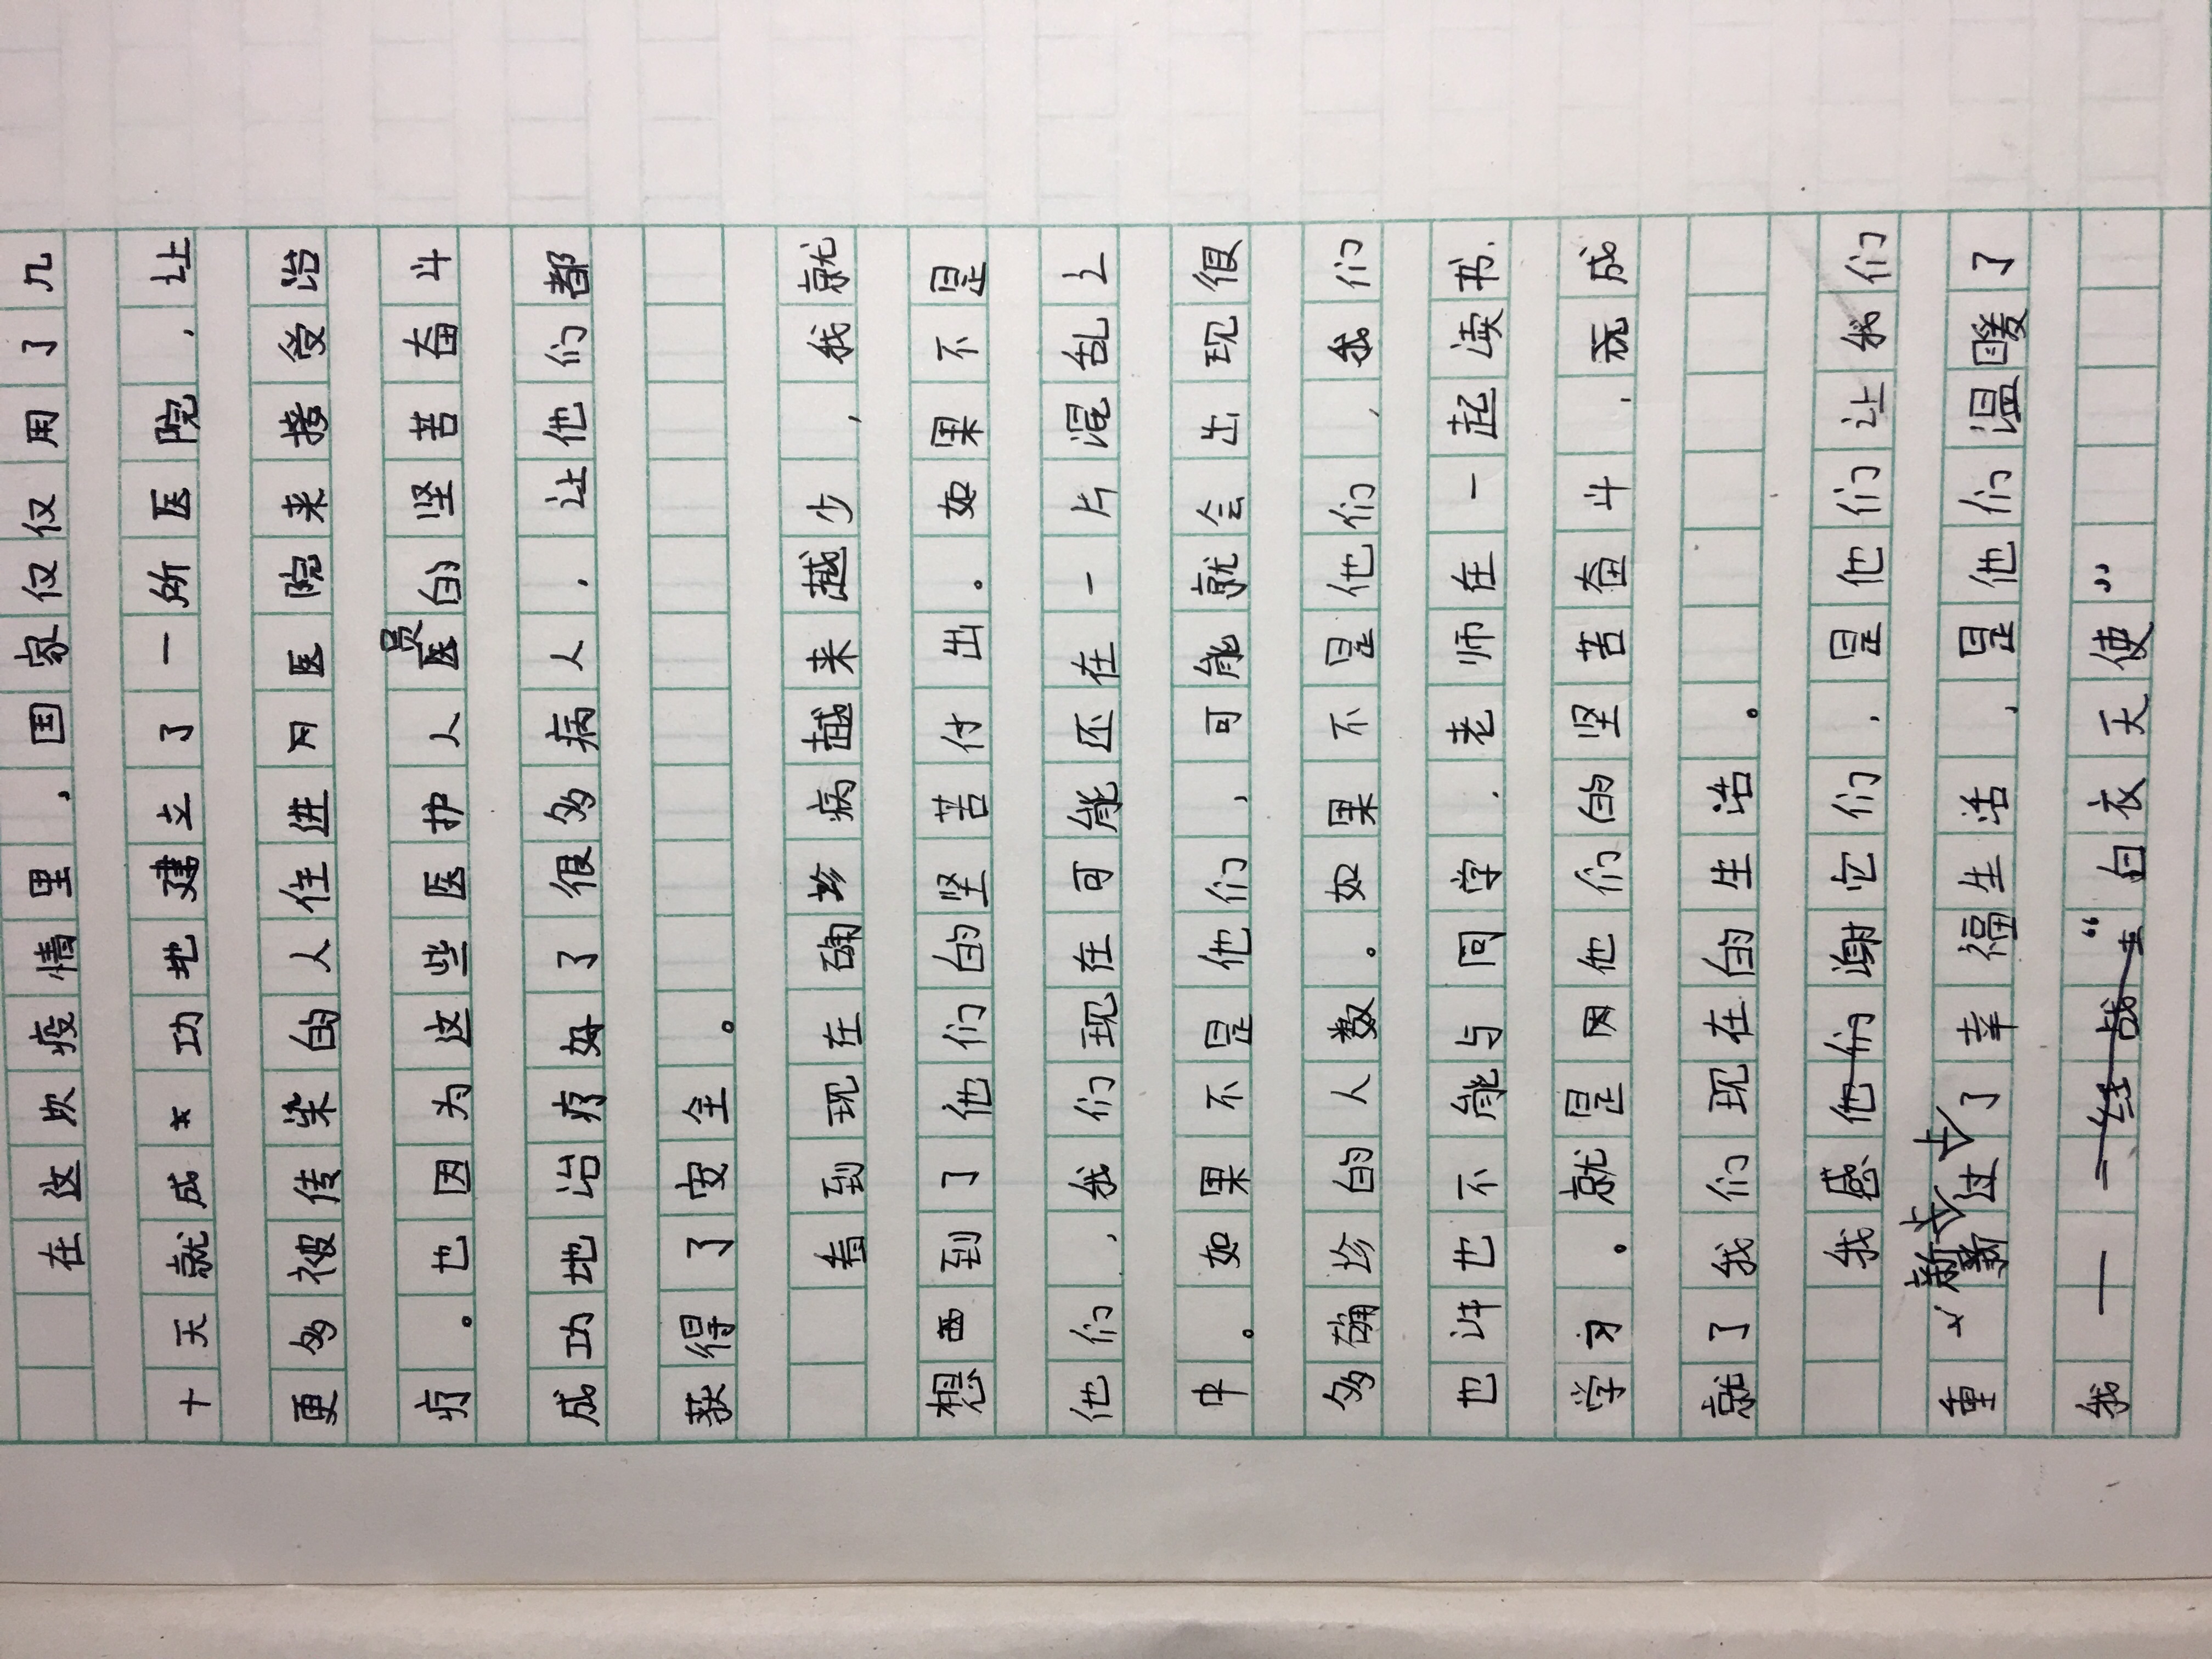 在这次疫情里,国家仅仅用了几
十天就成功地建立了一所医院,让
更多被传染的人住进医院来接受治
疗。也因为这些医护人员的坚苦奋斗
成功地治疗好了很多病人,让他们都
获得了安全。
看到现在确珍病越来越少,我就
想到了他们的坚苦付出。如果不是
他们,我们现在可能还在一片混乱之
中。如果不是他们,可能就会出现很
多确珍的人数。如果不是他们,我们
也许也不能与同学.老师在一起读书.
学习。就是因他们的坚苦奋斗,玩成
就了我们现在的生活。
我感谢它们,是他们让我们
重新过上了幸福生活,是他们温暖了
我——“白衣天使”